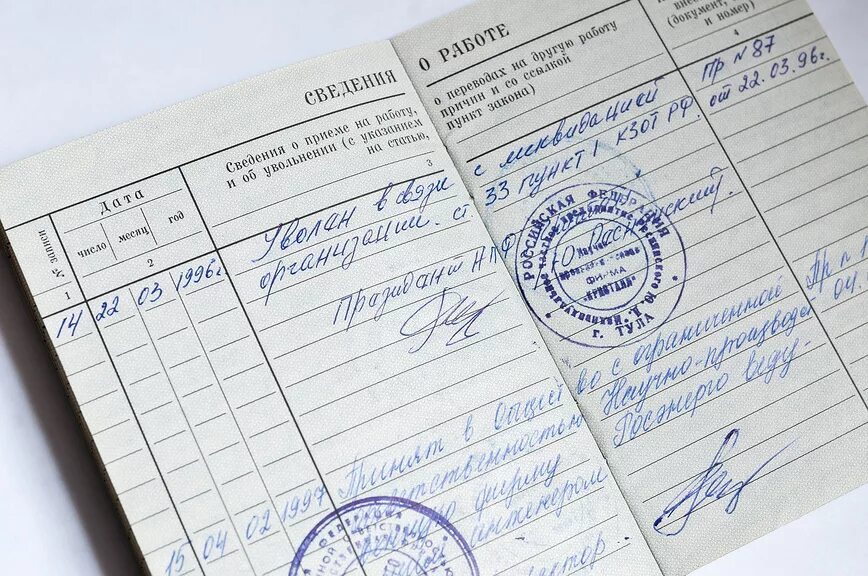 СВЕДЕНИЯ О РАБОТЕ
№ записи
Дата
число месяц год
Сведения о приеме на работу, о переводах на другую работу
и об увольнении (с указанием причин и со ссылкой
на статью, пункт закона)
(документ,
и номер)
1 2 3 4
14 22 03 1996г. Уволен в связи с ликвидацией Пр N 87
организации. ст 33 пункт 1 КЗОТ РФ. от 22.03.96г.
Президент НПФ
РОССИЙСКАЯ ФЕДЕРАЦИЯ
ФИРМА
"КРИСТАЛЛ"
г. ТУЛА
15 04 02 1997 Принят в Общество с ограниченной Пр
ответственностью Научно-производ 04.
фирму Росэнерго веду-
инженером